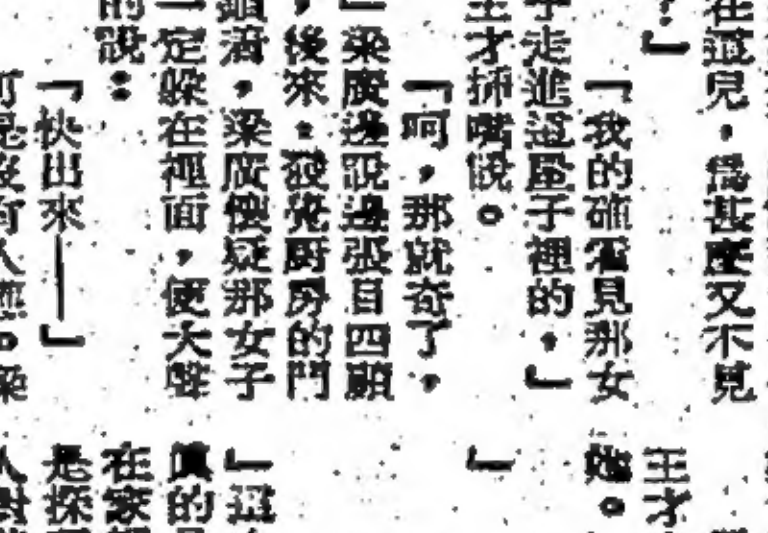 在這兒，爲甚麼又不見
？」
「我的確看見那女
子走進這屋子裡的，」
王才插嘴說。
「呵，那就奇了，
」梁廣邊說邊張目四顧
，後來，發覺厨房的門
着，梁廣懷疑那女子
一定躲在裡面，便大聲
的說：
「快出來——」
可是沒有人應。梁
王才
她。
」
」
真的
在家
是探
人對